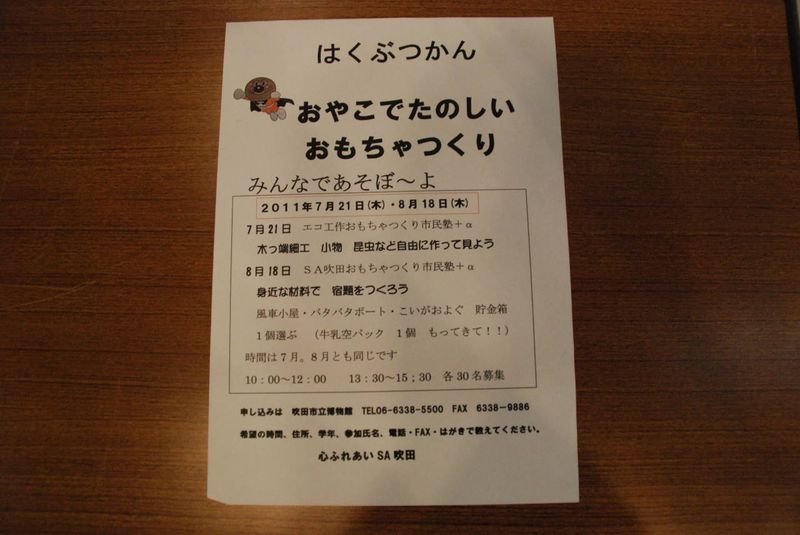 はくぶつかん
おやこでたのしい
おもちゃつくり
みんなであそぼ～よ
2011年7月21日(木)・8月18日(木)
7月21日　エコ工作おもちゃつくり市民塾＋α
木っ端細工　小物　昆虫など自由に作って見よう
8月18日　SA吹田おもちゃつくり市民塾＋α
身近な材料で　宿題をつくろう
風車小屋・バタバタボート・こいがおよぐ　貯金箱
1個選ぶ　（牛乳空パック　1個　もってきて！！）
時間は7月。8月とも同じです
10：00～12：00　　13：30～15；30　各30名募集
申し込みは　吹田市立博物館　TEL06-6338-5500　FAX　6338－9886
希望の時間、住所、学年、参加氏名、電話・FAX・はがきで教えてください。
心ふれあい SA 吹田